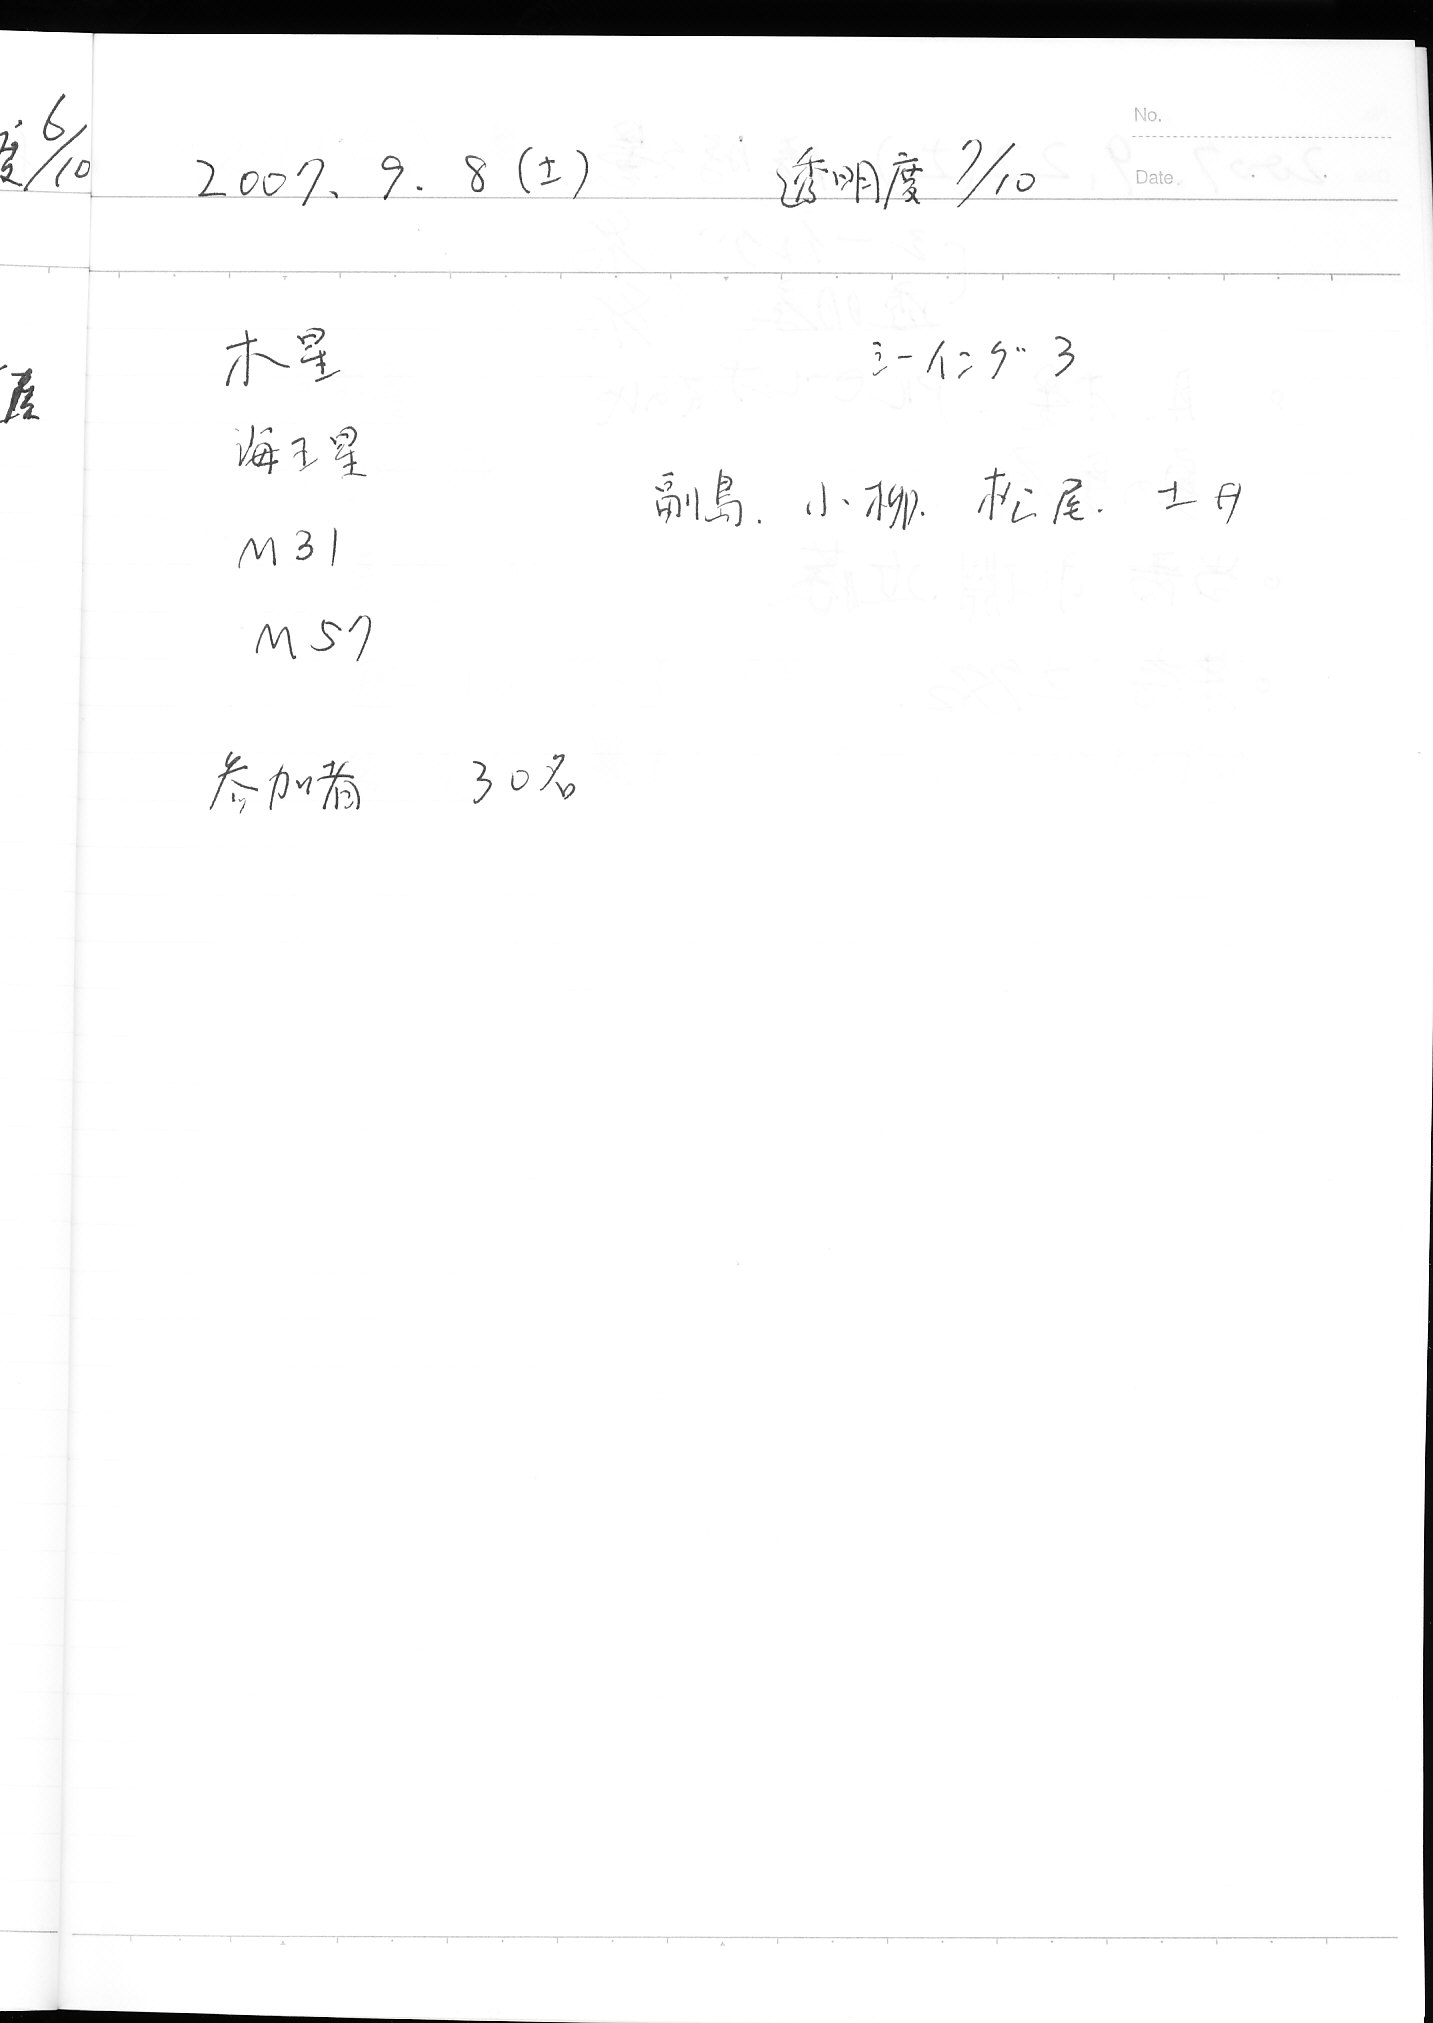 度 6/10
No.
2007. 9. 8 (土) 透明度 7/10
Date
木星 シーイング 3
海王星
副島. 小柳. 松尾. 土井
M31
M57
参加者 30名